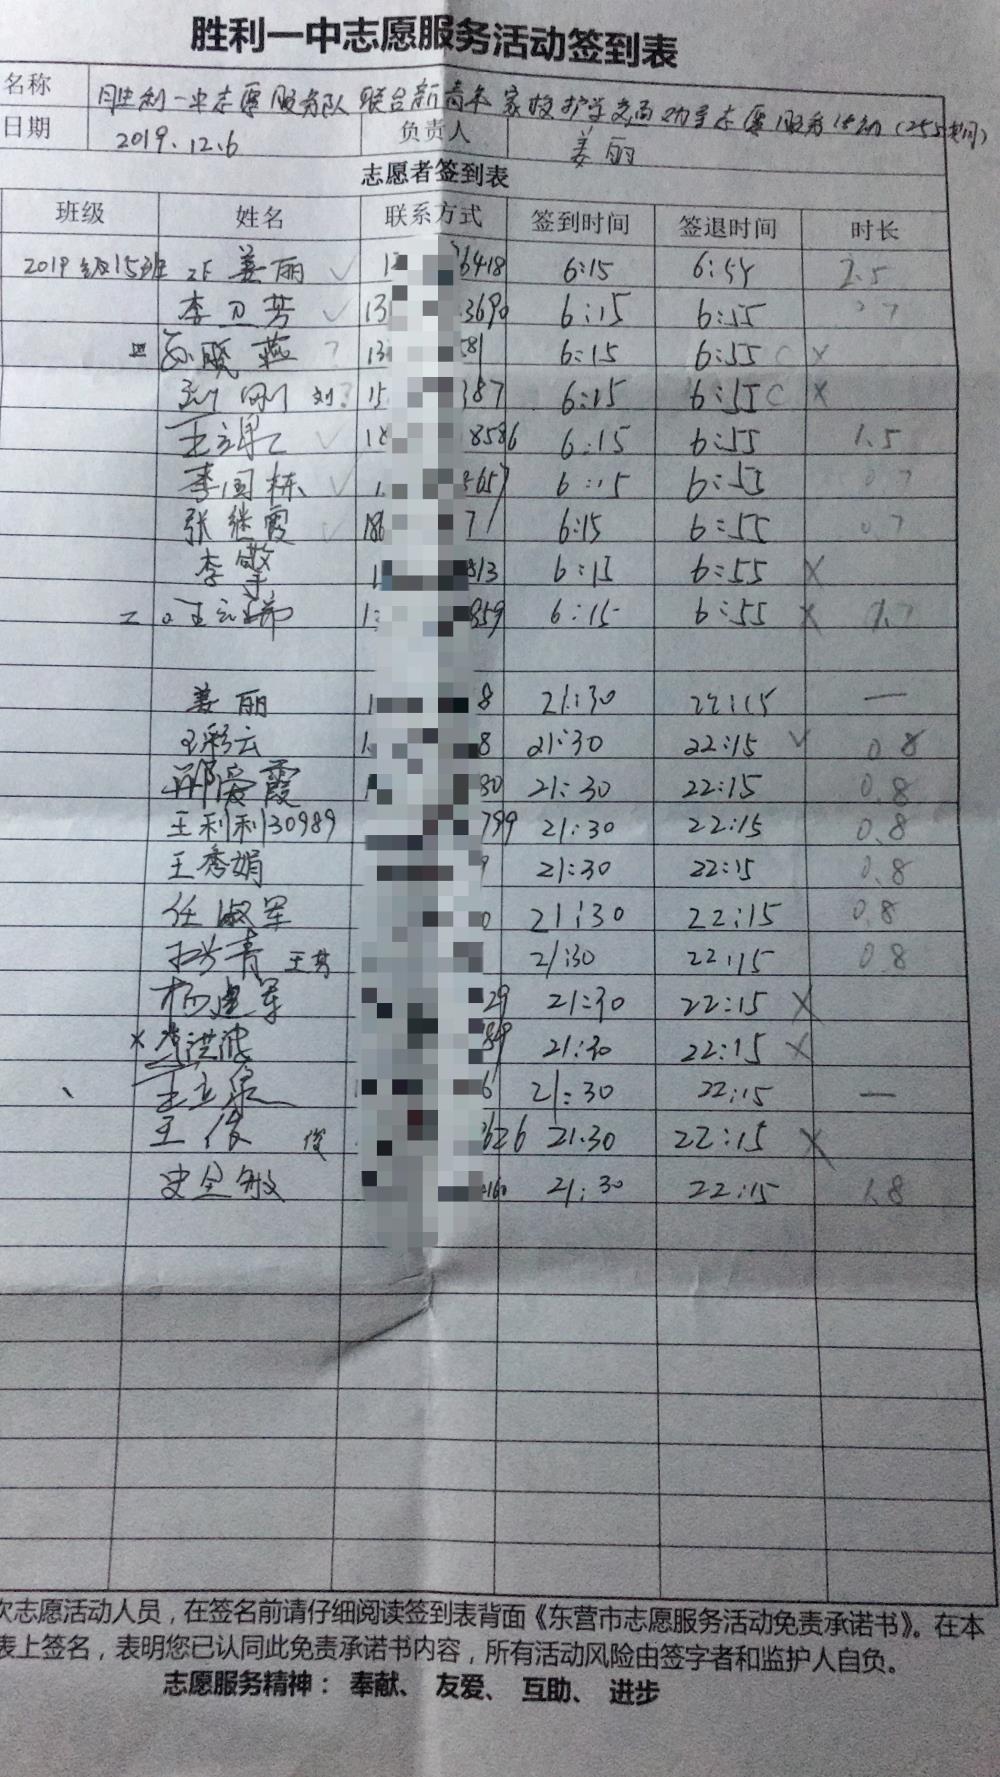 胜利一中志愿服务活动签到表
名称 胜利一中志愿服务队联合新青年家校护学交通劝导志愿服务活动(255期)
日期 2019.12.6 负责人 姜丽
志愿者签到表
班级 姓名 联系方式 签到时间 签退时间 时长
2019级15班 姜丽 ✓ 6418 6:15 6:55 1.5
李卫芳 ✓ 13 3690 6:15 6:55
孙晓燕 ? 13 581 6:15 6:55 C X
刘刚 刘? 15 387 6:15 6:55 C X
王立泉 ✓ 18 8586 6:15 6:55 1.5
李国栋 ✓ 3657 6:15 6:55 0.7
张继霞 ✓ 186 71 6:15 6:55 0.7
李擎 1 813 6:15 6:55 X
二 859 6:15 6:55 X 1.7
姜丽 1 8 21:30 22:15 —
王彩云 1 8 21:30 22:15 ✓ 0.8
邢爱霞 80 21:30 22:15 0.8
王利利 130989 799 21:30 22:15 0.8
王秀娟 9 21:30 22:15 0.8
任淑军 0 21:30 22:15 0.8
王芳 21:30 22:15 0.8
杨建军 29 21:30 22:15 X
X 洪波 849 21:30 22:15 X
王立泉 6 21:30 22:15 —
王俊 俊 3626 21.30 22:15 X
史全敏 160 21:30 22:15 1.8
次志愿活动人员，在签名前请仔细阅读签到表背面《东营市志愿服务活动免责承诺书》。在本
表上签名，表明您已认同此免责承诺书内容，所有活动风险由签字者和监护人自负。
志愿服务精神： 奉献、 友爱、 互助、 进步